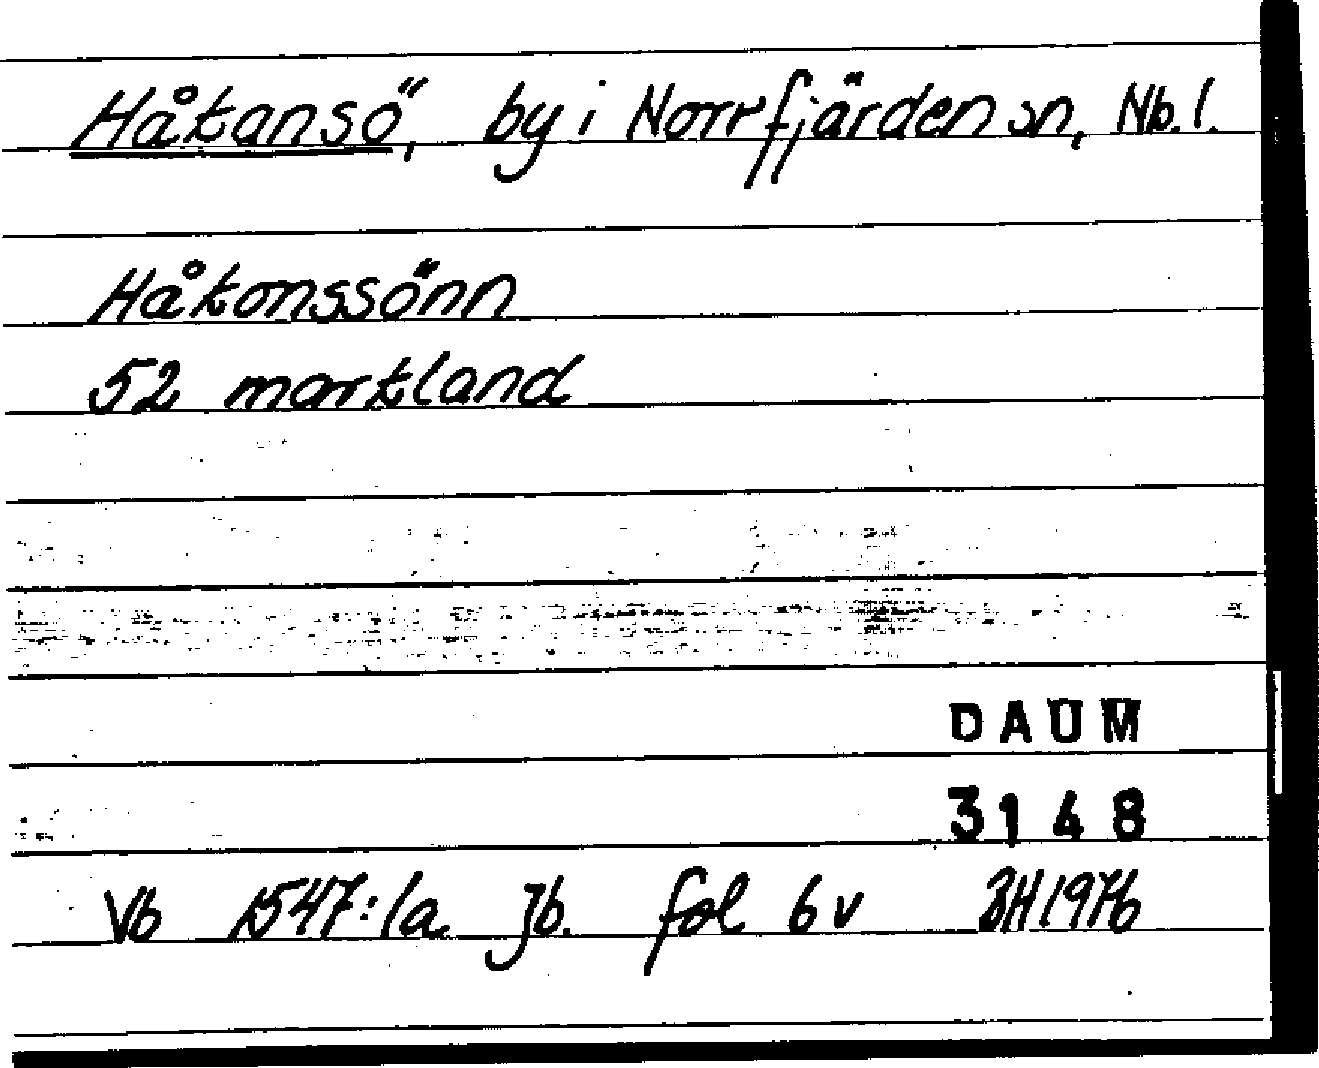 Håkansö, by i Norrfjärden sn, Nb.l.
Håkonssönn
52 markland
DAUM
3148
Vb 1547:1a. Jb. fol 6 v BH1976